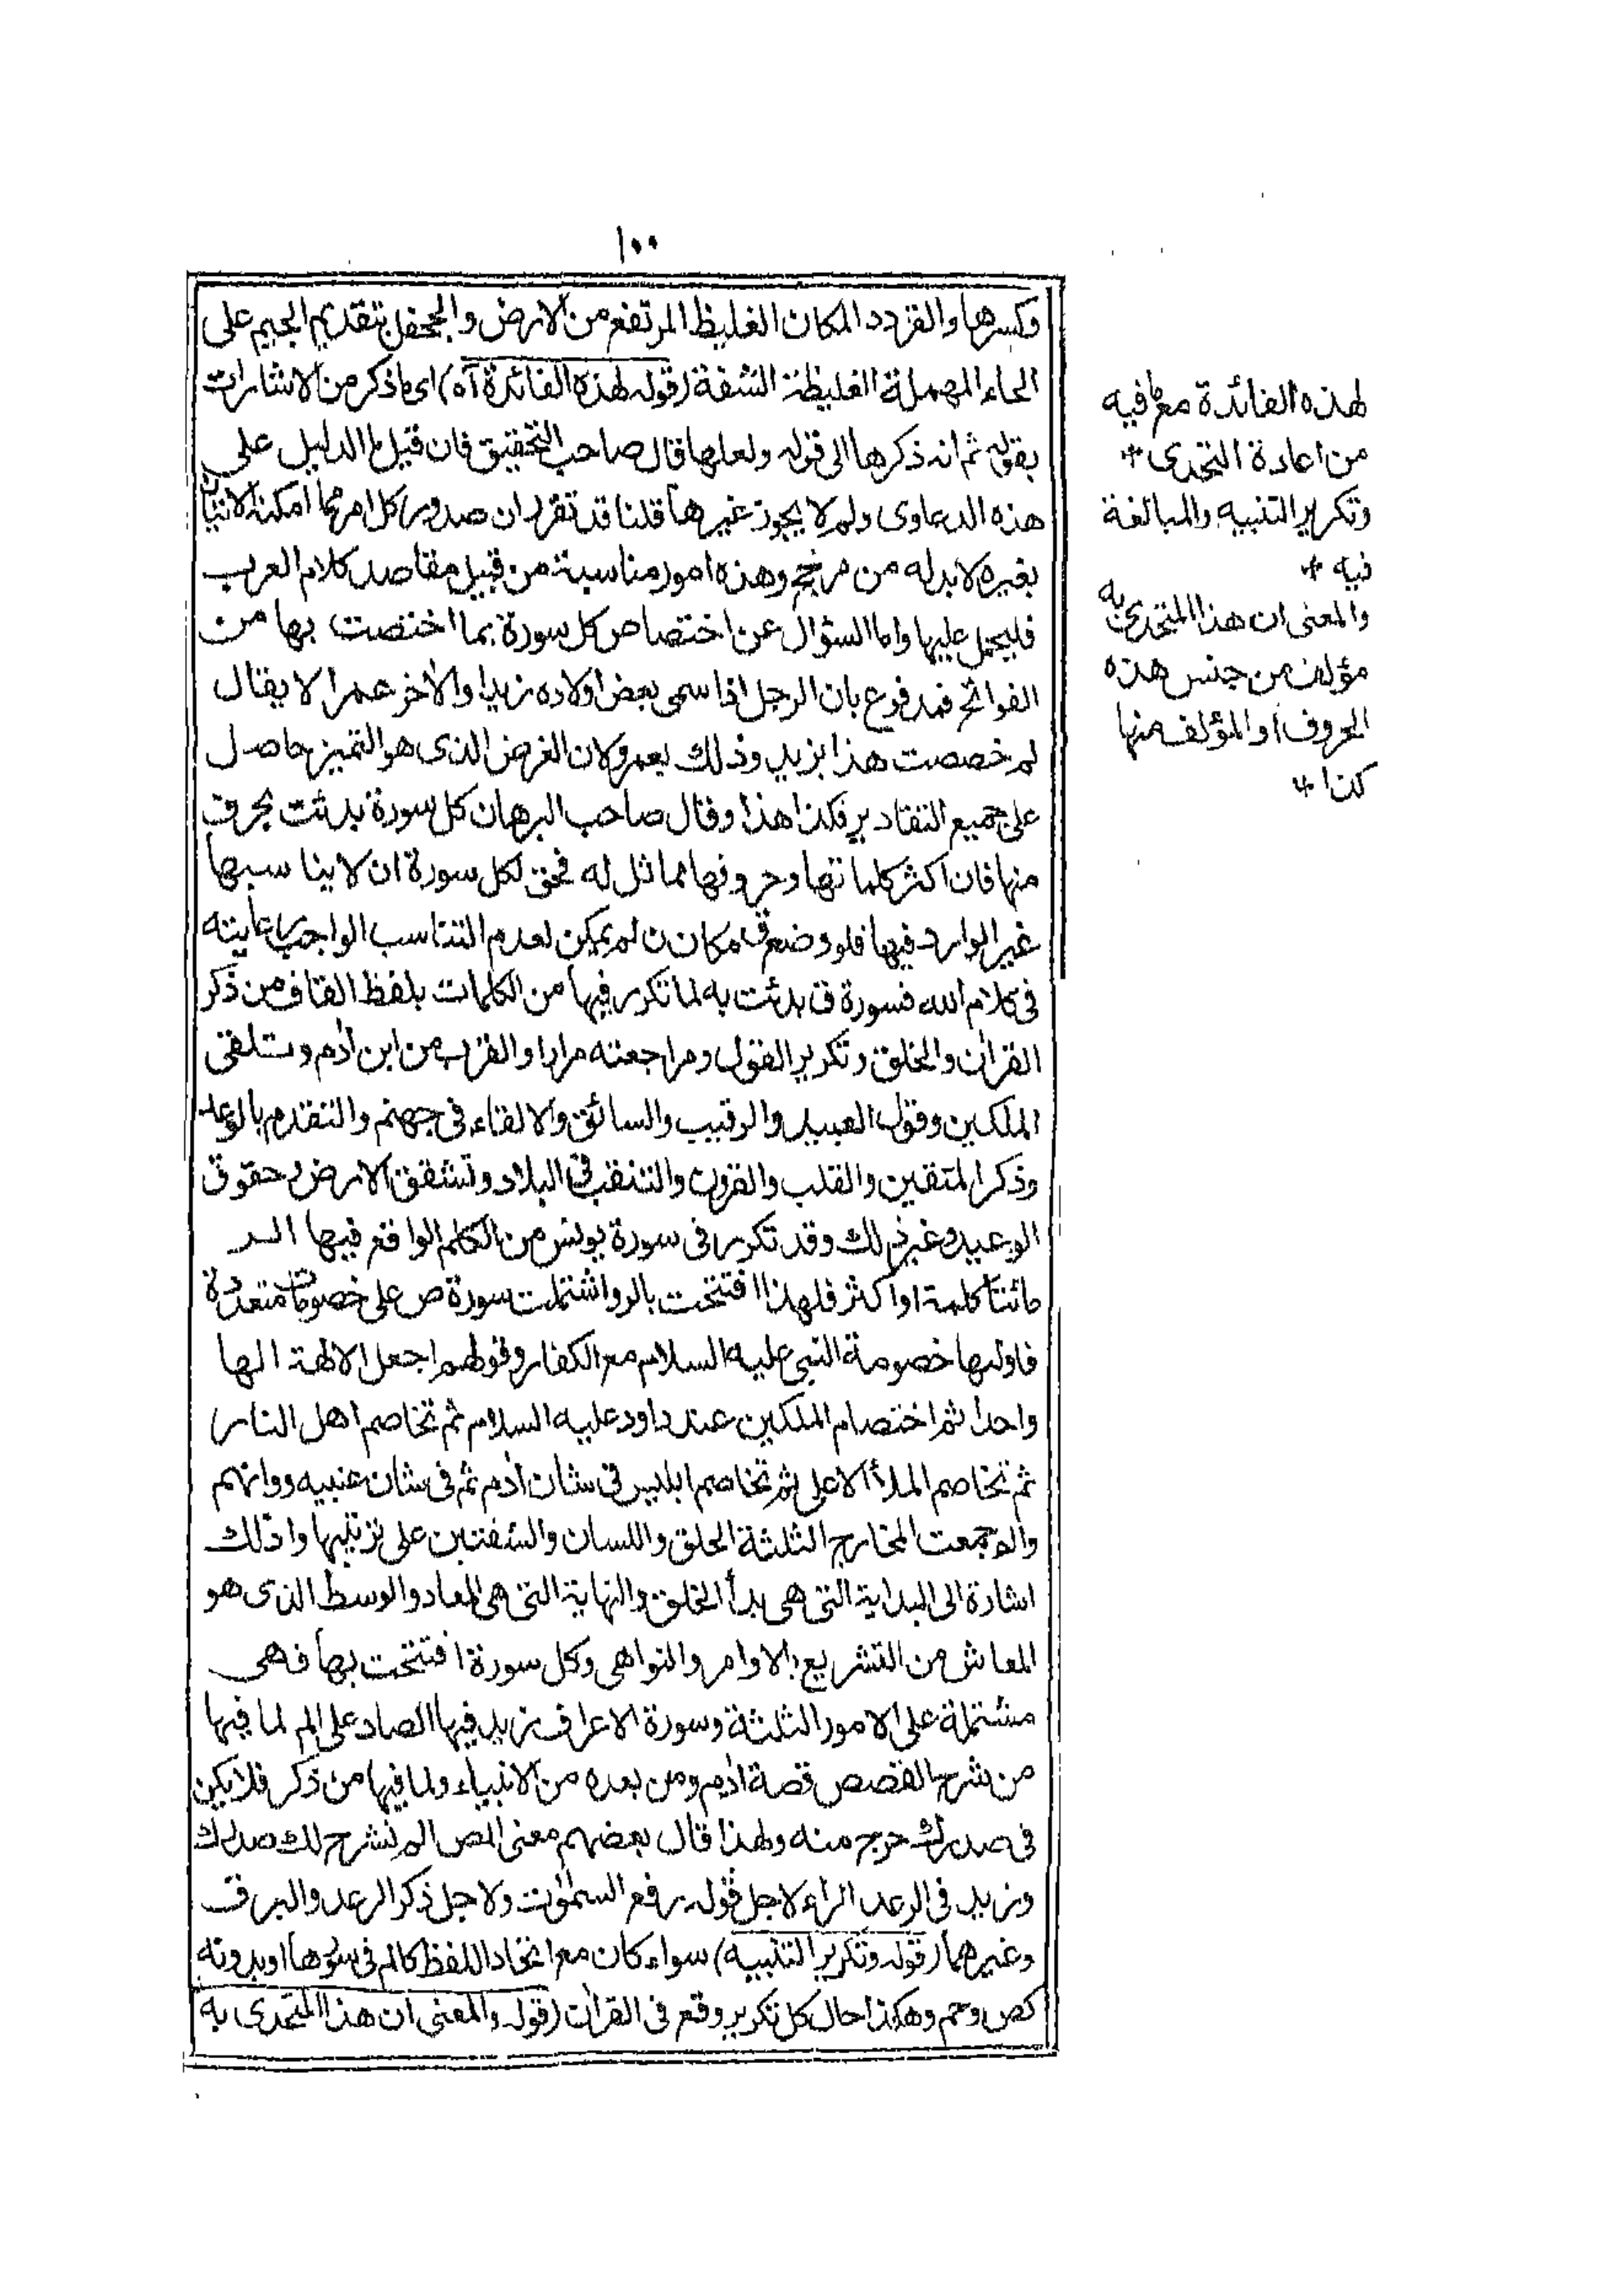 ١٠٠
وكسرها والقردد المكان الغليظ المرتفع من الارض والجحفل بتقديم الجيم على
الحاء المهملة الغليظة الشفة (قوله لهذه الفائدة آه) اى ما ذكر من الاشارات
بقوله ثم انه ذكرها الى قوله ولعلها قال صاحب التحقيق فان قيل ما الدليل على
هذه الدعاوى ولم لا يجوز غيرها قلنا قد تقرر ان صدور كل امر مما امكن الاتيان
بغيره لابد له من مرجح وهذه امور مناسبة من قبيل مقاصد كلام العرب
فليحمل عليها واما السؤال عن اختصاص كل سورة بما اختصت بها من
الفواتح فمدفوع بان الرجل اذا سمى بعض اولاده زيدا والآخر عمرا لا يقال
لم خصصت هذا بزيد وذلك بعمرو لان الغرض الذى هو التميز حاصل
على جميع التقادير فكذا هذا وقال صاحب البرهان كل سورة بدئت بحرف
منها فان اكثر كلماتها وحروفها مماثل له فحق لكل سورة ان لا يناسبها
غير الوارد فيها فلو وضع ق مكان ن لم يمكن لعدم التناسب الواجب رعايته
فى كلام الله فسورة ق بدئت به لما تكرر فيها من الكلمات بلفظ القاف من ذكر
القرآن والخلق وتكرير القول ومراجعته مرارا والقرب من ابن آدم وتلقى
الملكين وقول العبيد والرقيب والسائق والالقاء فى جهنم والتقدم بالوعد
وذكر المتقين والقلب والقرون والتنقب فى البلاد وتشقق الارض وحقوق
الوعيد وغير ذلك وقد تكرر فى سورة يونس من الكلم الواقع فيها الر
مائتا كلمة او اكثر فلهذا افتتحت بالر واشتملت سورة ص على خصومات متعددة
فاولها خصومة النبى عليه السلام مع الكفار وقولهم اجعل الالهة الها
واحدا ثم اختصام الملكين عند داود عليه السلام ثم تخاصم اهل النار
ثم تخاصم الملأ الاعلى ثم تخاصم ابليس فى شان آدم ثم فى شان بنيه
والم جمعت المخارج الثلثة الحلق واللسان والشفتين على ترتيبها وذلك
اشارة الى البداية التى هى بدأ الخلق والنهاية التى هى المعاد والوسط الذى هو
المعاش من التشريع بالاوامر والنواهى وكل سورة افتتحت بها فهى
مشتملة على الامور الثلثة وسورة الاعراف زيد فيها الصاد على الم لما فيها
من شرح القصص قصة آدم ومن بعده من الانبياء ولما فيها من ذكر فلا يكن
فى صدرك حرج منه ولهذا قال بعضهم معنى المص الم نشرح لك صدرك
وزيد فى الرعد الراء لاجل قوله رفع السموٰت ولاجل ذكر الرعد والبرق
وغيرهما (قوله وتكرير التنبيه) سواء كان مع اتحاد اللفظ كالم فى سورها او بدونه
كص وحم وهكذا حال كل تكرير وقع فى القرآن (قوله والمعنى ان هذا المتحدى به
لهذه الفائدة مع ما فيه
من اعادة التحدى *
وتكرير التنبيه والمبالغة
فيه *
والمعنى ان هذا المتحدى به
مؤلف من جنس هذه
الحروف او المؤلف منها
كذا *